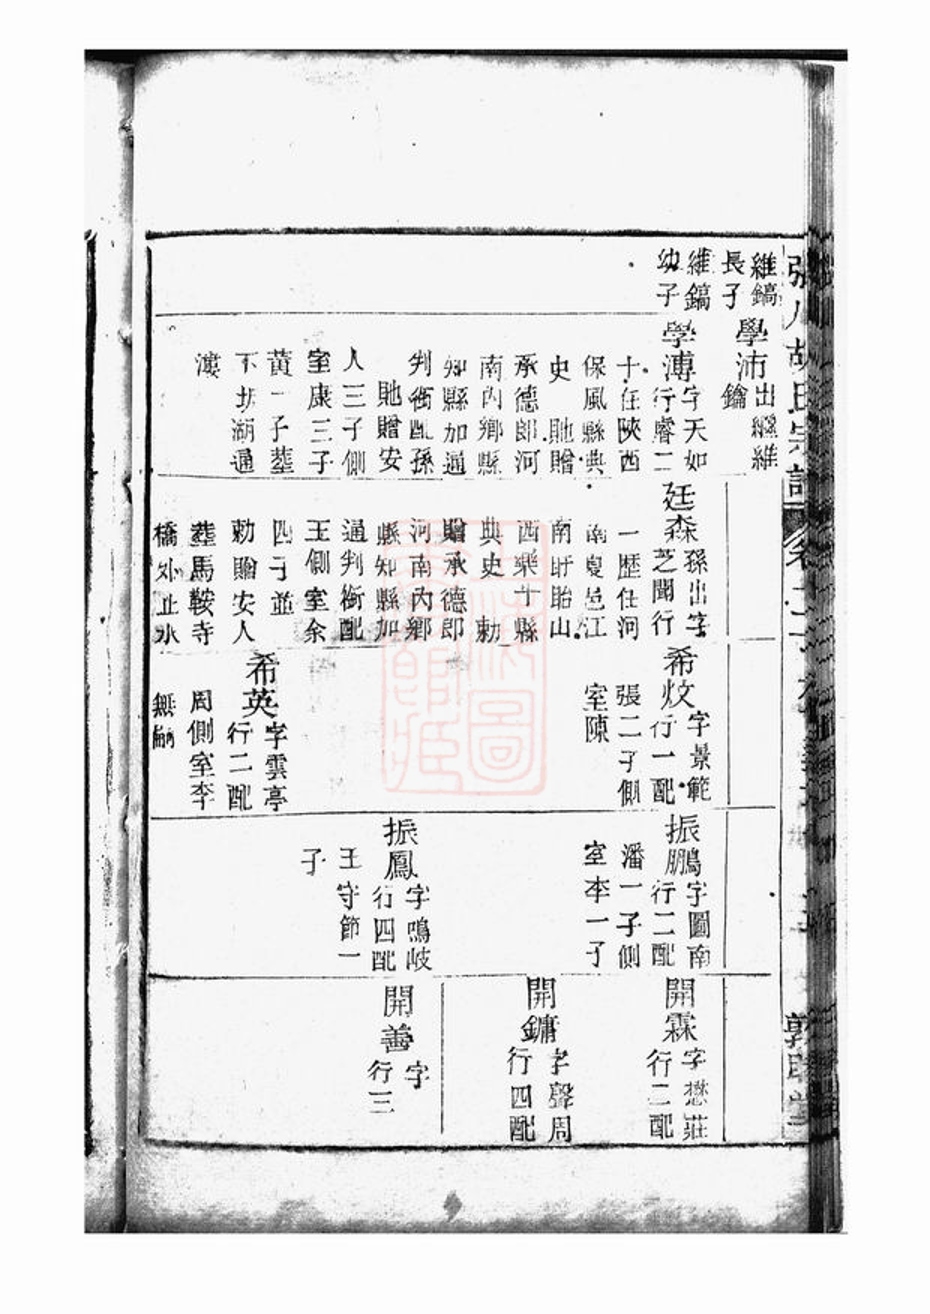 維鎬
長子
學沛出繼維
鑰
維鎬
幼子
學溥字天如
行睿二
十任陝西
保風縣典
史貤贈
承德郎河
南內鄉縣
知縣加通
判銜配孫
貤贈安
人三子側
室康三子
黃一子塟
湖通
漊
廷森孫出字
芝聞行
一歷任河
南夏邑江
南盱眙山
西樂十縣
典史勅
贈承德郎
河南內鄉
縣知縣加
通判銜配
王側室余
四子並
勅贈安人
塟馬鞍寺
橋外止水
希炆字景範
行一配
張二子側
室陳
希英字雲亭
行二配
周側室李
無嗣
振鵬字圖南
行二配
潘一子側
室李一子
振鳳字鳴岐
行四配
王守節一
子
開霖字懋莊
行二配
開鏞字聲周
行四配
開善字
行三